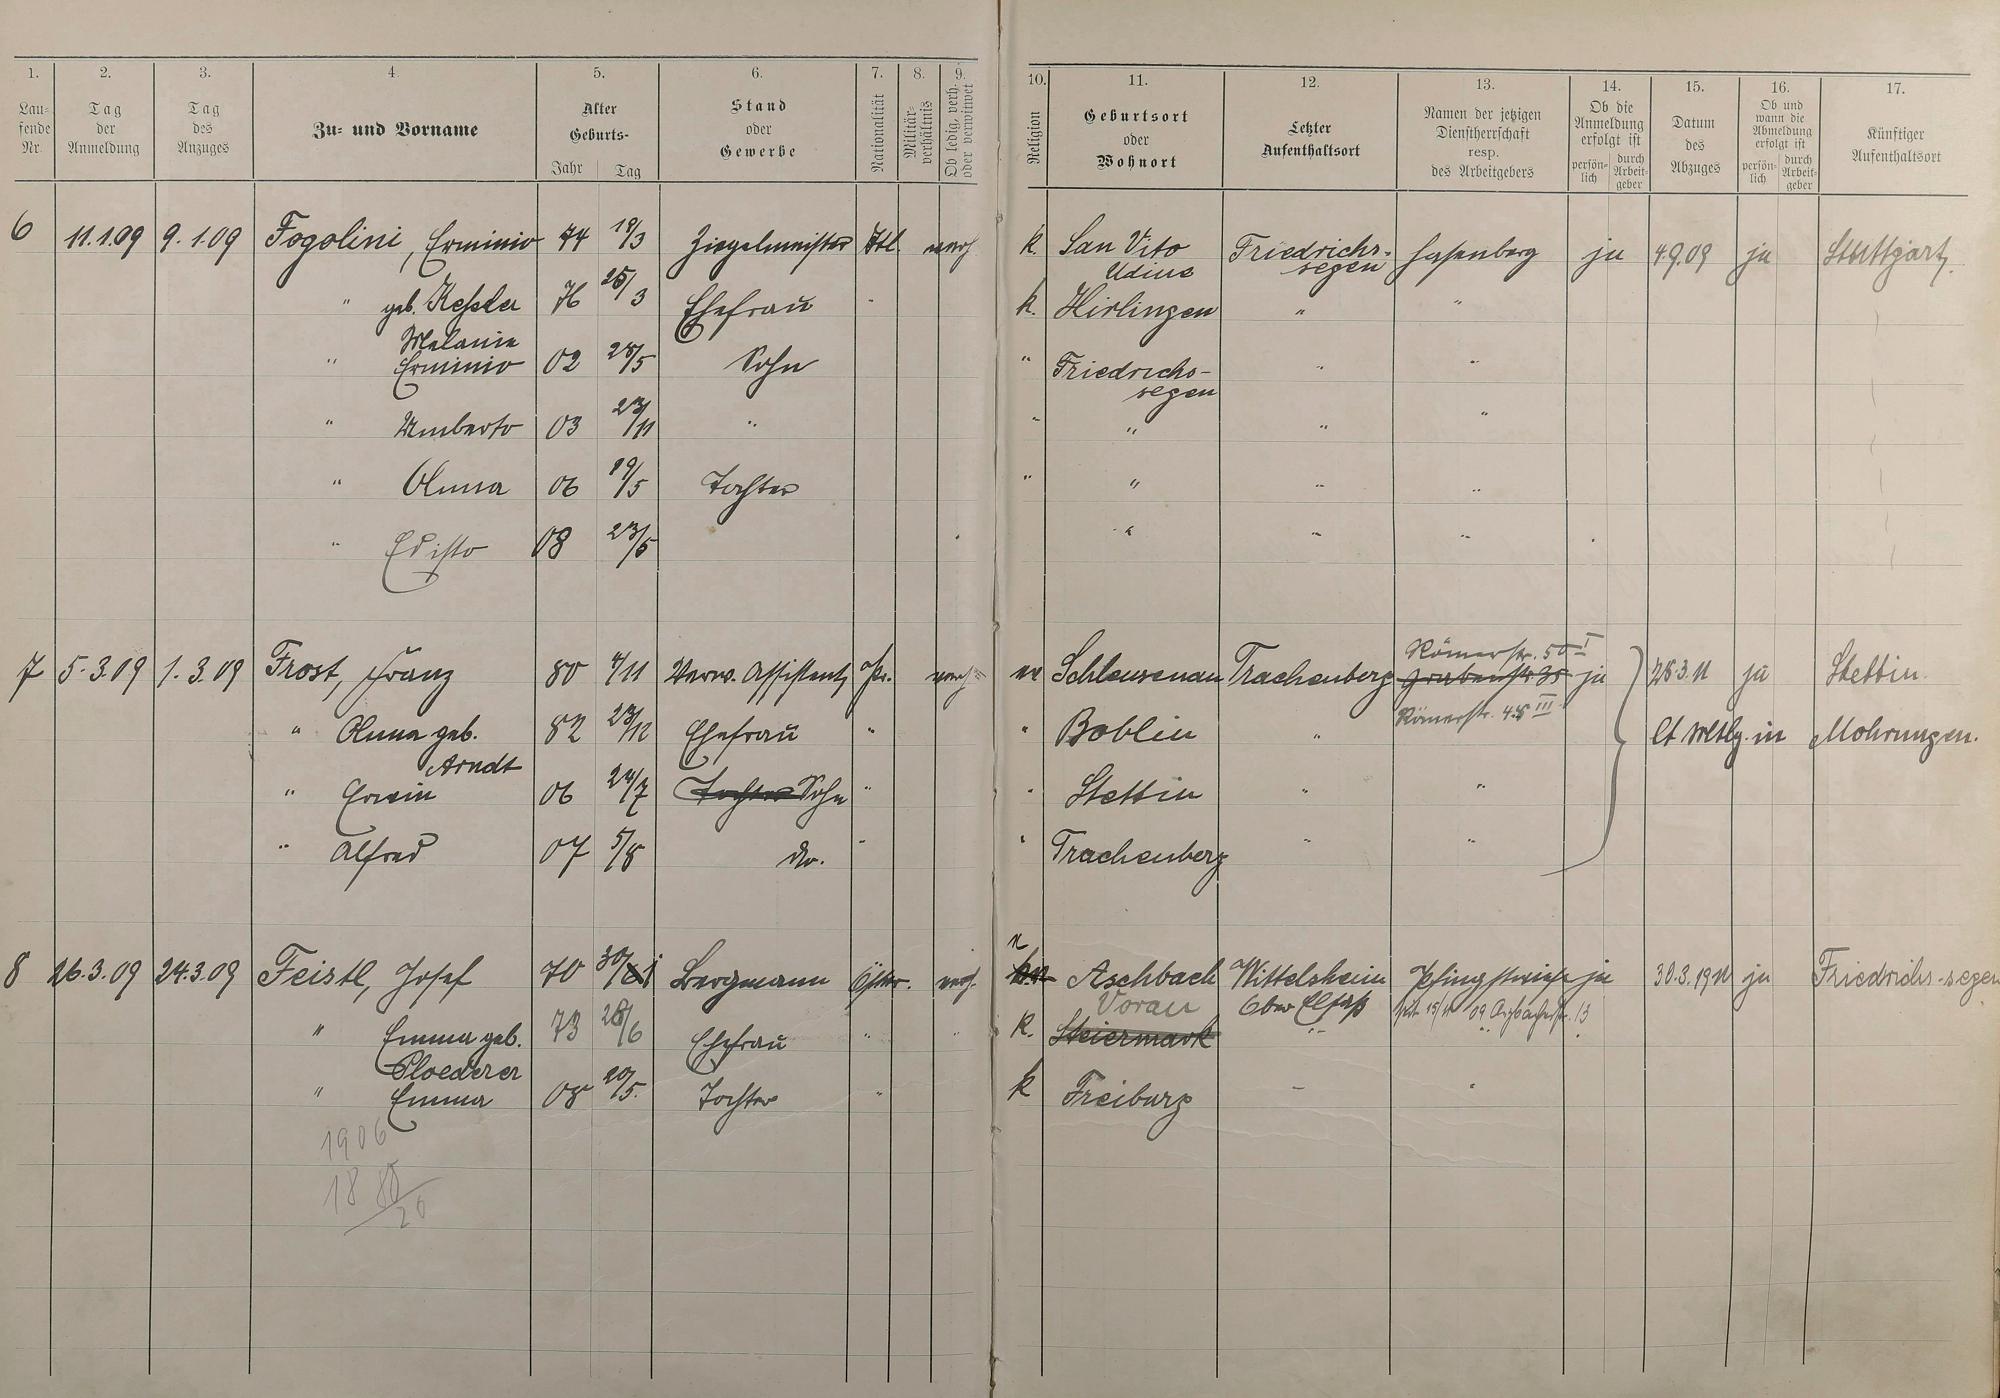 1. 2. 3. 4 5. 6. 7. 8. 9. 10. 11. 12. 13. 14. 15. 16. 17.
Lau-
fende
Nr.
Tag
der
Anmeldung
Tag
des
Anzuges
Zu- und Vorname
Alter
Geburts-
Jahr Tag
Stand
oder
Gewerbe
Nationalität
Militär-
verhältnis
Ob ledig, verh.
oder verwitwet
Religion
Geburtsort
oder
Wohnort
Letzter
Aufenthaltsort
Namen der jetzigen
Dienstherrschaft
resp.
des Arbeitgebers
Ob die
Anmeldung
erfolgt ist
persön-
lich
durch
Arbeit-
geber
Datum
des
Abzuges
Ob und
wann die
Abmeldung
erfolgt ist
persön-
lich
durch
Arbeit-
geber
Künftiger
Aufenthaltsort
6 11.1.09 9.1.09 Fogolini, Erminio 74 18/3 Ziegelmeister Itl. verh k. San Vito Friedrichs- Hasenberg ja 4.9.09 ja Stuttgart.
Udine segen
" geb. Kessler 76 25/3 Ehefrau " k. Hirlingen " "
Melanie
" Erminio 02 28/5 Sohn " Friedrichs- " "
segen
" Umberto 03 23/11 " " " " "
" Anna 06 19/5 Tochter " " " "
" Edisto 08 23/5 " " "
7 5.3.09 1.3.09 Frost, Franz 80 4/11 Verw. Assistent Pr. verh ev Schleusenau Trachenberg Römerstr. 50 I ja 25.3.11 ja Stettin.
Grabenstr 35
" Anna geb. 82 23/12 Ehefrau " " Boblin " Römerstr. 48 III lt Mtlg. in Mohrungen.
Arndt
" Erwin 06 24/7 Tochter Sohn " " Stettin " "
" Alfred 07 5/8 do. " " Trachenberg " "
8 26.3.09 24.3.09 Feistl, Josef 70 30/1 Bergmann Öster. verh. Aschbach Wittelsheim Pfingstweide ja 30.3.1911 ja Friedrichs-segen
Vorau Ober Elsaß
" Emma geb. 73 28/6 Ehefrau " " k. Steiermark "
Ploederer
" Emma 08 20/5. Tochter " k Freiburg "
1906
1880
26